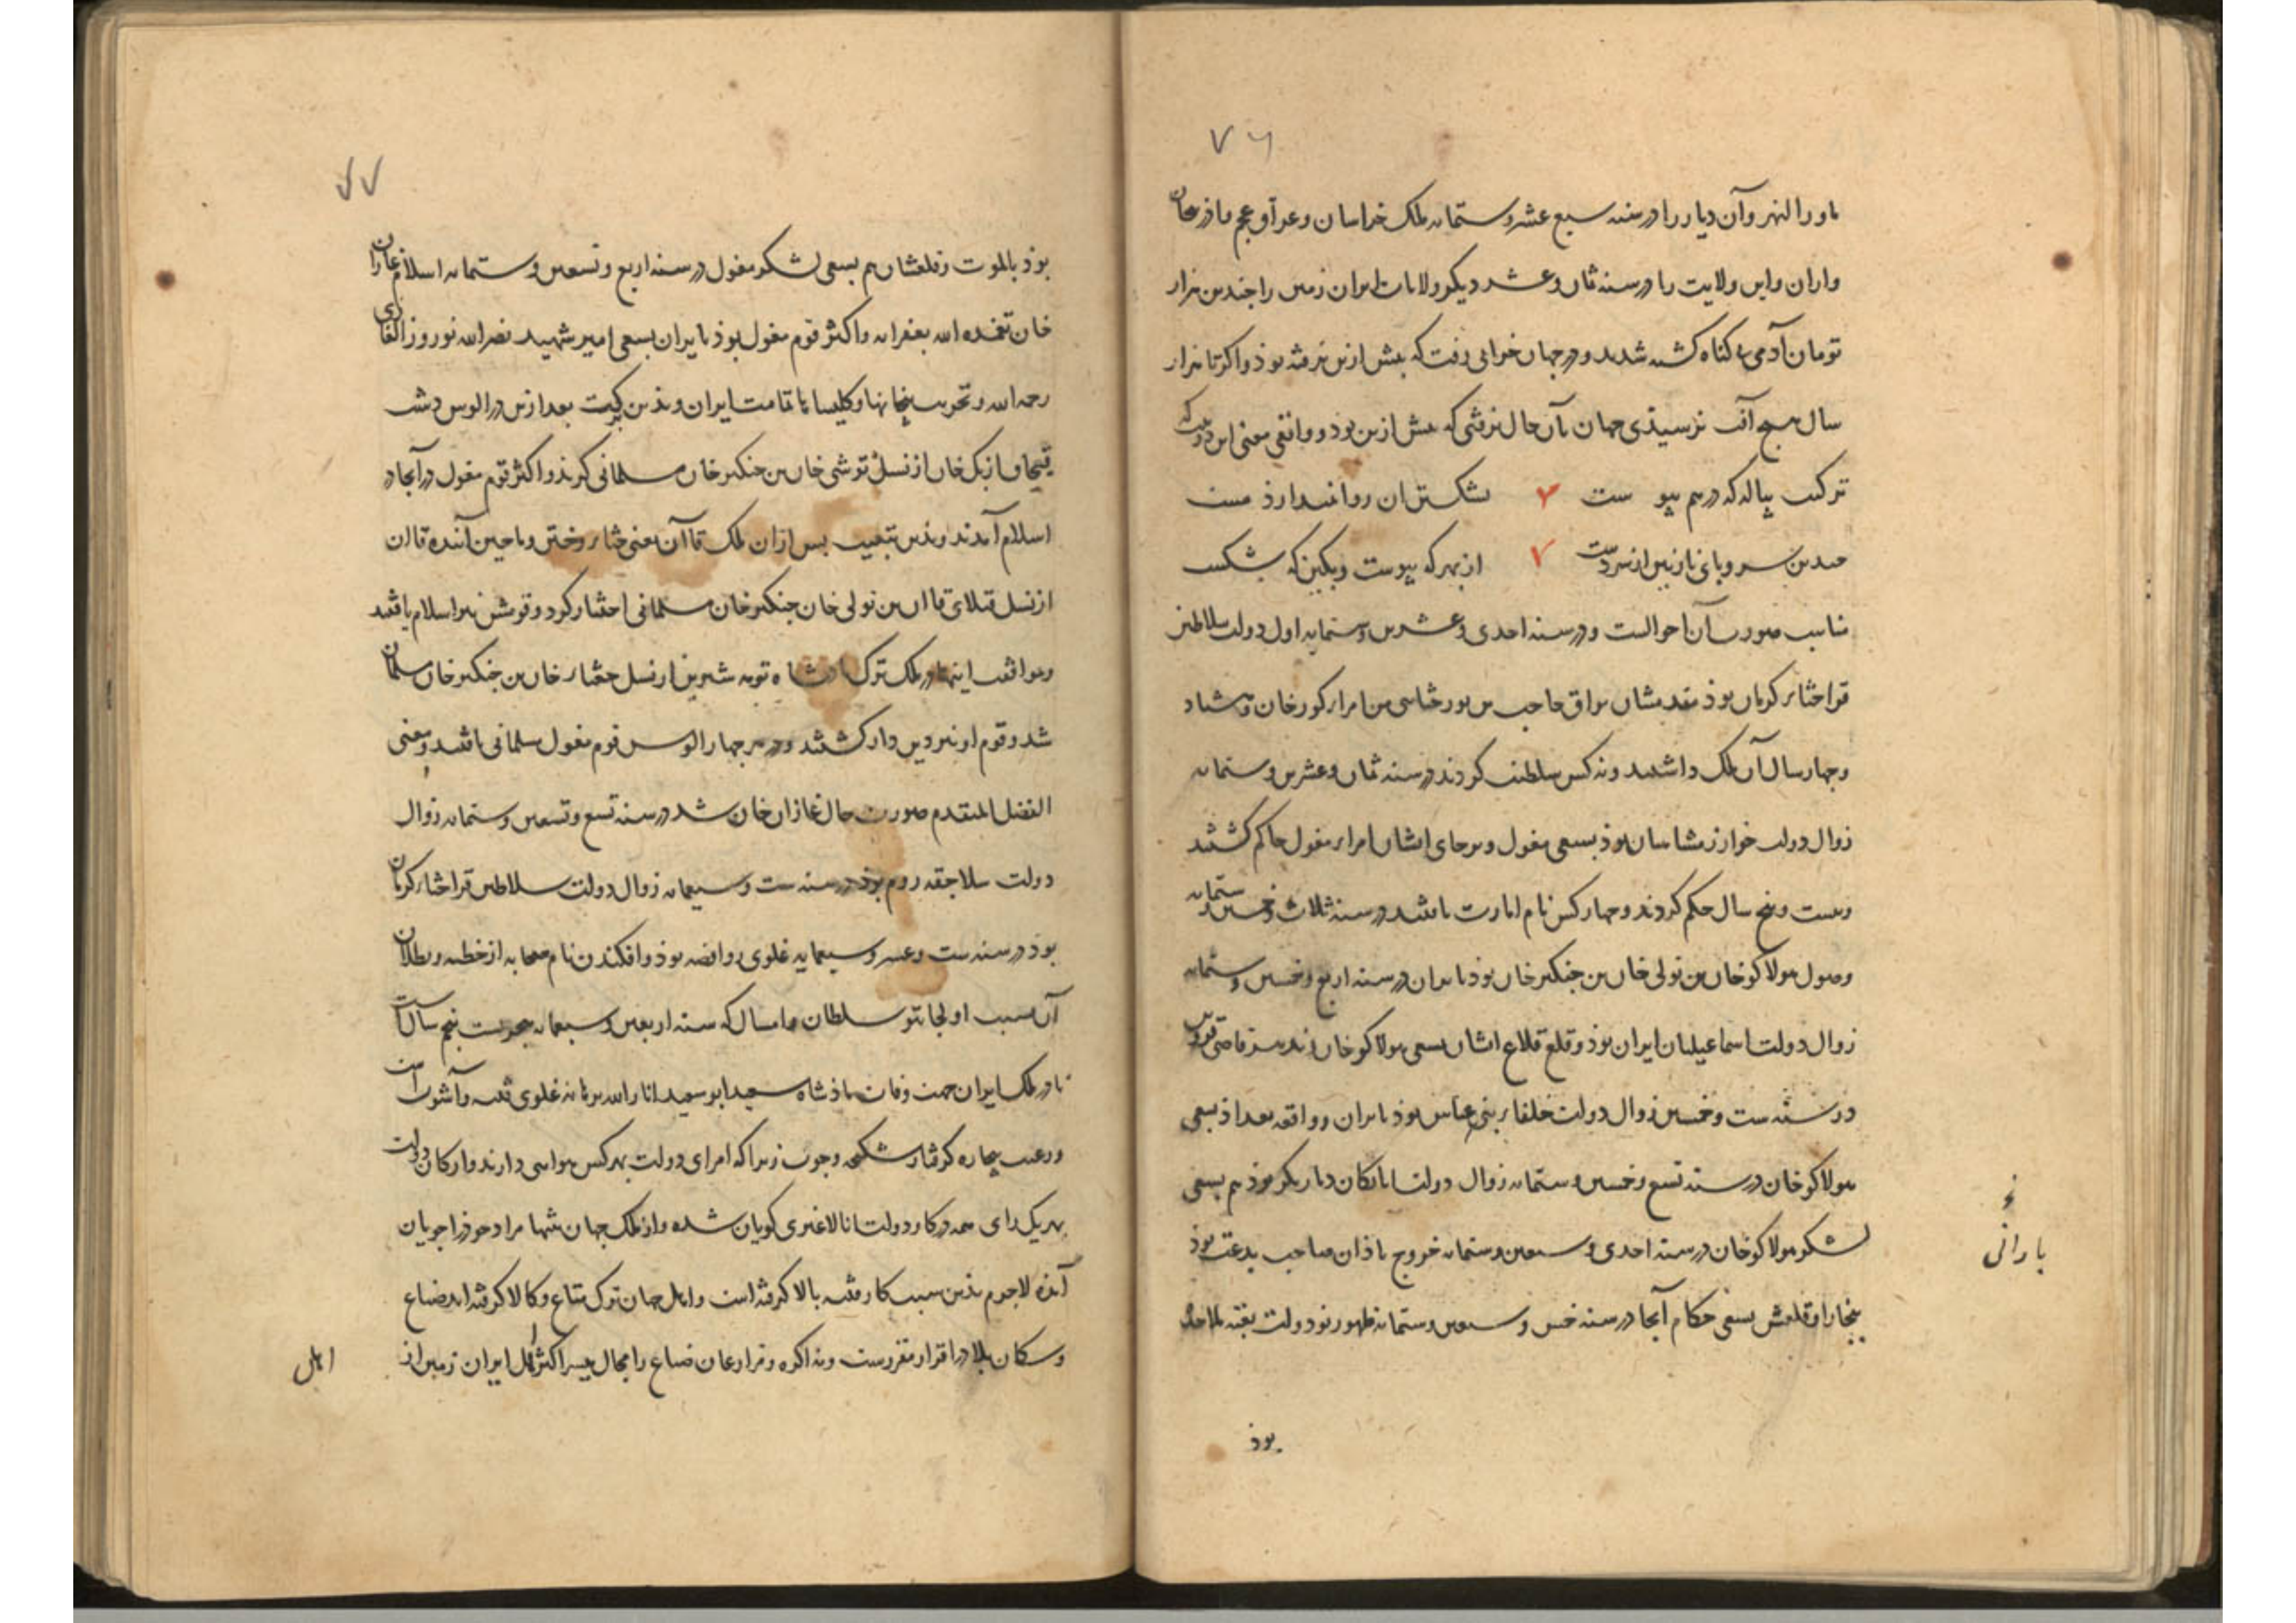 ۷۶
ماورا النهر وآن دیار را در سنه سبع عشر وستمایه ملک خراسان وعراق عجم واذربیجان
واران واین ولایت را در سنه ثمان وعشر دیکر ولایات ایران زمین را چندین هزار
تومان آدمی بی کناه کشته شدند ودر جهان خرابی رفت که پیش ازین نرفته بوذ واکر تا هزار
سال هیچ آفت نرسیذی جهان بآن حال نرفتی که پیش ازین بوذ وواقعی معنی این دو بیت که
ترکیب پیاله که درهم پیو ست ۷ بشکستن آن روا نمیدارذ مست
چندین سر وپای نازنین از سر دست ۷ از بهر که پیوست وبکین که شکست
مناسب صورت آن احوالست ودر سنه احدی وعشرین وستمایه اول دولت سلاطین
قراختاء کرمان بوذ مقدمشان براق حاجب من امراء کورخان وهشتاد
وچهار سال آن ملک داشتند ونه کس سلطنت کردند در سنه ثمان وعشرین وستمایه
زوال دولت خوارزمشاهیان بوذ بسعی مغول وبرجای ایشان امراء مغول حاکم کشتند
وبیست وپنج سال حکم کردند وچهار کس نام امارت یافتند در سنه ثلاث وخمسین وستمایه
وصول هولاکوخان بن تولی خان بن جنکیز خان بوذ بایران در سنه اربع وخمسین وستمایه
زوال دولت اسماعیلیان ایران بوذ وقلع قلاع ایشان بسعی هولاکو خان قاضی قزوین
در سنه ست وخمسین زوال دولت خلفاء بنی عباس بوذ بایران وواقعه بغداذ بسعی
هولاکو خان در سنه تسع وخمسین وستمایه زوال دولت اتابکان دیار بکر بوذ هم بسعی
لشکر هولاکو خان در سنه احدی وسبعین وستمایه خروج باذان صاحب بدعت بوذ
بارانی
ببخارا وقلعش بسعی حکام آنجا در سنه خمس وسبعین وستمایه ظهور نو دولت بقیه ملاحده
بوذ
۷۷
بوذ بالموت وقلعشان هم بسعی لشکر مغول در سنه اربع وتسعین وستمایه اسلام غازان
خان تغمده الله بغفرانه واکثر قوم مغول بوذ بایران بسعی امیر شهید نصرالله نوروز الغازی
رحمه الله وتخریب بتخانها وکلیساها تمامت ایران وبذین بعد ازین در الوس دشت
قپچاق ازبک خان از نسل توشی خان بن جنکیز خان مسلمانی کزید واکثر قوم مغول در آنجا در
اسلام آمدند وبذین تبعیت پس از آن ملک قاآن یعنی ختاء وختن وماچین آننده قاآن
از نسل قبلای قاآن بن تولی خان جنکیز خان مسلمانی اختیار کرد وقومش نیز اسلام یافتند
وموافقت اینها در ملک ترک پادشاه ترمه شیرین از نسل جغتاء خان بن جنکیز خان مسلمان
شد وقوم او نیز دین دار کشتند ودر هر چهار الوس قوم مغول مسلمانی یافتند ومعنی
الفضل للمتقدم صورت حال غازان خان شد در سنه تسع وتسعین وستمایه زوال
دولت سلاجقه روم بوذ در سنه ست وسبعمایه زوال دولت سلاطین قراختاء کرمان
بوذ در سنه ست وعشر وسبعمایه غلوی روافضه بوذ وافکندن نام صحابه از خطبه وبطلان
آن بسبب اولجایتو سلطان وامسال که سنه اربعین وسبعمایه هجریست پنجم سالست
تا در ملک ایران جهت وفات پاذشاه سعید ابوسعید انار الله برهانه غلوی فتنه وآشوب است
ورعیت بیچاره کرفتار شکنجه وچوب زیرا که امرای دولت بهر کس هواسی دارند وارکان دولت
بهر یک رای همه در کار دولت انا لا غیری کویان شده واز ملک جهان تنها مراد خوذ را جویان
آمذه لاجرم بذین سبب کار فتنه بالا کرفته است واهل جهان ترک متاع وکالا کرفته اند ضیاع
وسکان بلاد را قرار مقررست ونه اکره ومزارعان ضیاع را مجال میسر اکثر اهل ایران زمین از
اهل